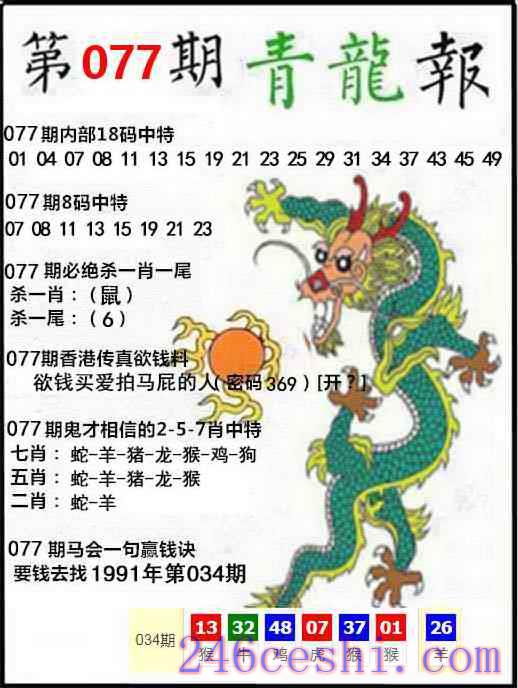 第077期青龍報
077期内部18码中特
01 04 07 08 11 13 15 19 21 23 25 29 31 34 37 43 45 49
077期8码中特
07 08 11 13 15 19 21 23
077期必绝杀一肖一尾
杀一肖：（鼠）
杀一尾：（6）
077期香港传真欲钱料
欲钱买爱拍马屁的人(密码369)[开？]
077期鬼才相信的2-5-7肖中特
七肖：蛇-羊-猪-龙-猴-鸡-狗
五肖：蛇-羊-猪-龙-猴
二肖：蛇-羊
077期马会一句赢钱诀
要钱去找1991年第034期
13 32 48 07 37 01 26
034期 猴 牛 鸡 虎 猴 猴 羊
246ceshi.com